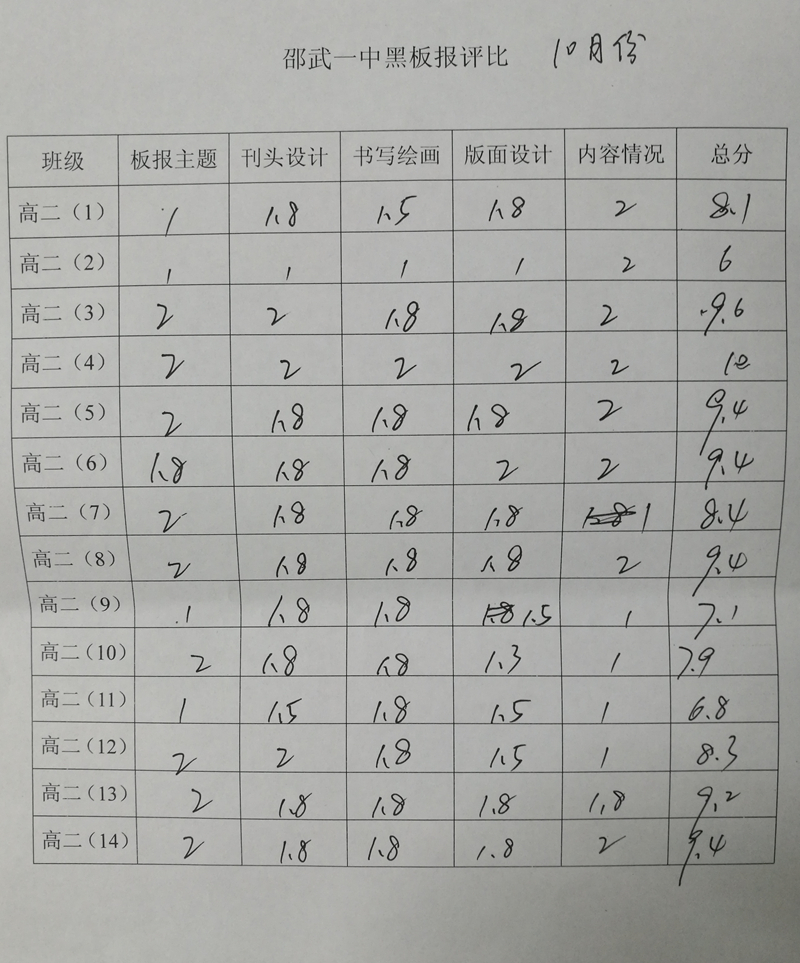 邵武一中黑板报评比 10月份
班级 板报主题 刊头设计 书写绘画 版面设计 内容情况 总分
高二（1） 1 1.8 1.5 1.8 2 8.1
高二（2） 1 1 1 1 2 6
高二（3） 2 2 1.8 1.8 2 9.6
高二（4） 2 2 2 2 2 10
高二（5） 2 1.8 1.8 1.8 2 9.4
高二（6） 1.8 1.8 1.8 2 2 9.4
高二（7） 2 1.8 1.8 1.8 1 8.4
高二（8） 2 1.8 1.8 1.8 2 9.4
高二（9） 1 1.8 1.8 1.5 1 7.1
高二（10） 2 1.8 1.8 1.3 1 7.9
高二（11） 1 1.5 1.8 1.5 1 6.8
高二（12） 2 2 1.8 1.5 1 8.3
高二（13） 2 1.8 1.8 1.8 1.8 9.2
高二（14） 2 1.8 1.8 1.8 2 9.4